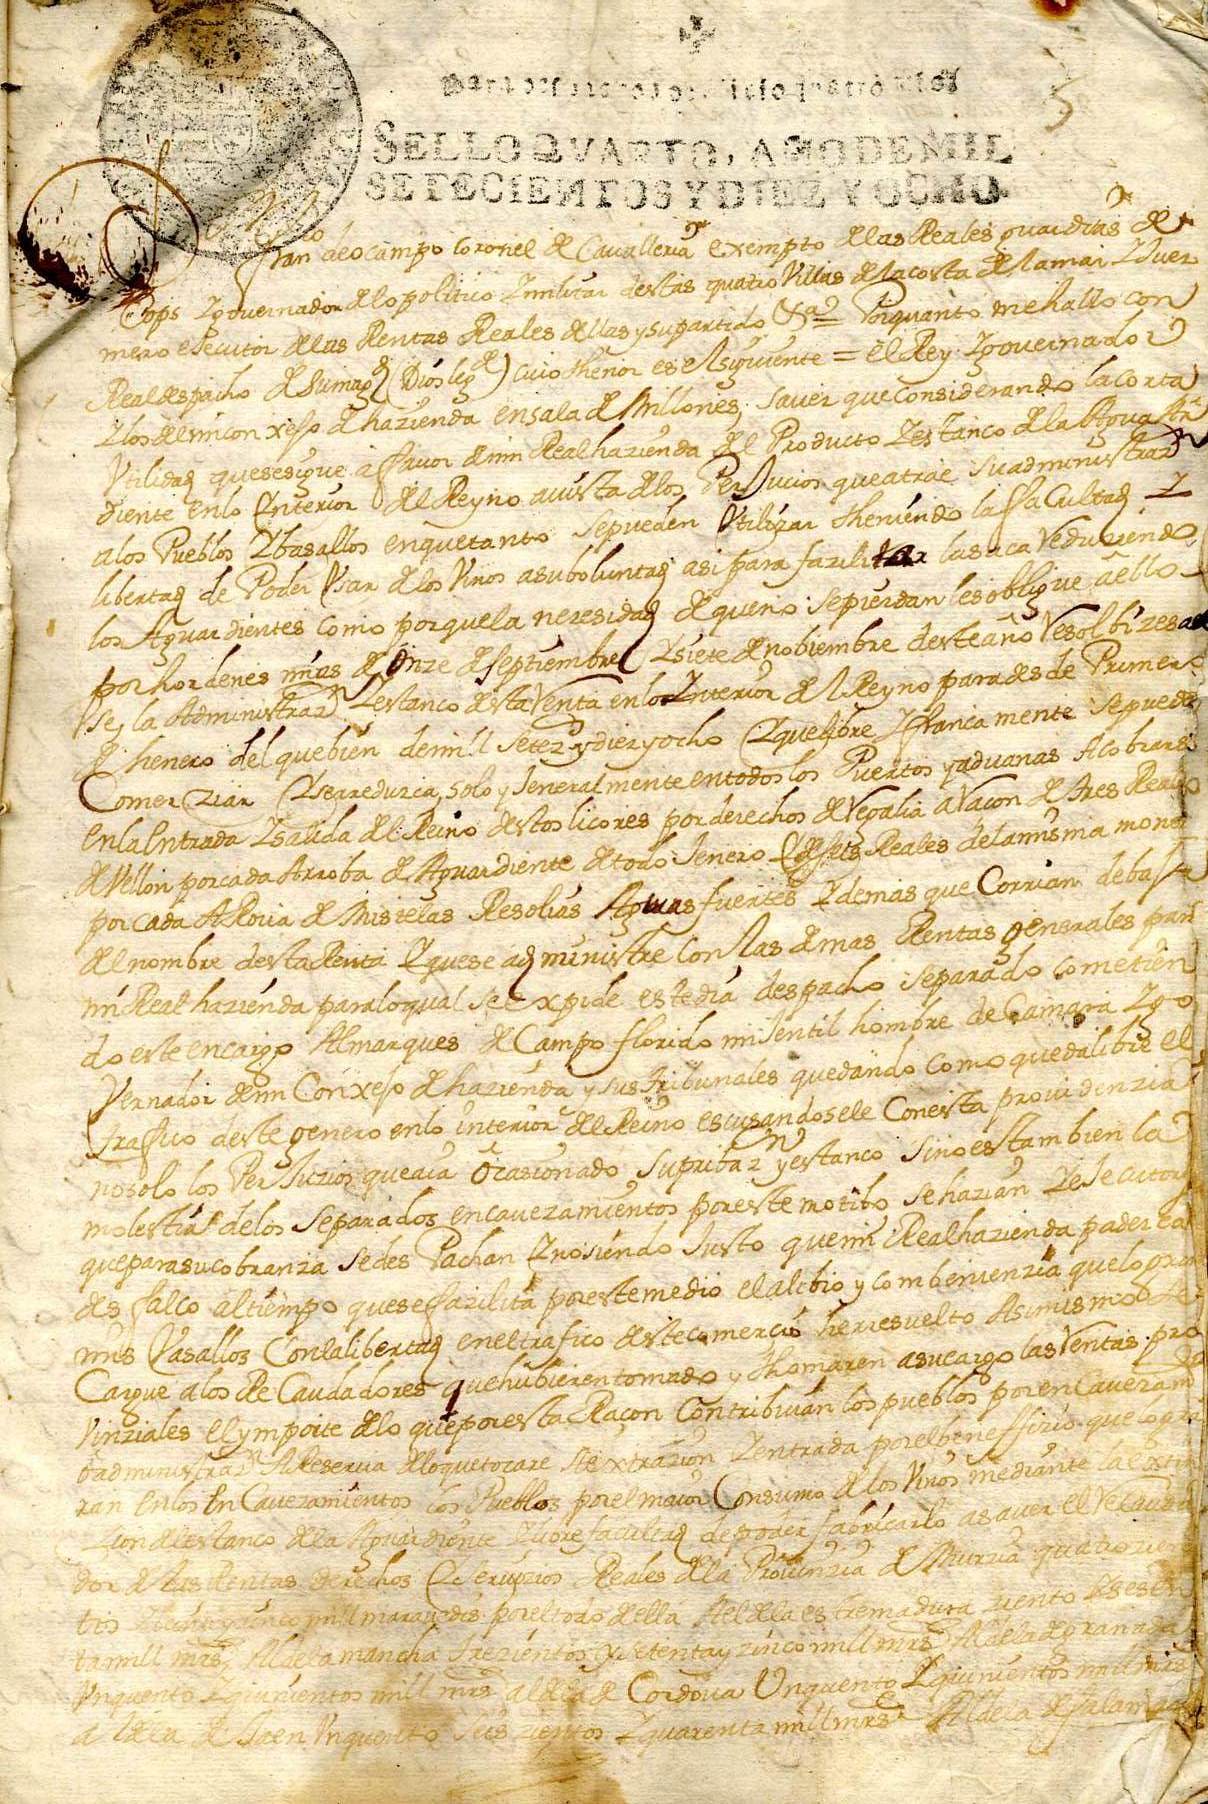 SELLO QVARTO, AÑO DE MIL
SETECIENTOS Y DIEZ Y OCHO.
5
Fran de ocampo Coronel de Cavalleria exempto de las Reales guardias de
Cops Y governador de lo politico Y militar destas quatro Villas de la costa de la mar Y Super
mero executor de las Rentas Reales dellas y su partido = Por quanto me hallo con
Real despacho de Su mag (Dios le g) cuio thenor es el siguiente = el Rey Y governador
Y los de mi conxeso de hazienda en sala de Millones, saver que considerando la corta
Utilidad que se sigue a favor de mi Real hazienda del Producto Y estanco de la Agua Ar
diente en lo Ynterior del Reyno a vista de los Perjuicios que atrae su administraz
a los Pueblos Y basallos en que tanto se pueden Utilizar theniendo la facultad Y
libertad de Poder Usar de los Vinos a su boluntad asi para fazilitar la saca Reduziendo
los Aguardientes como porque la neresidad de que no se pierdan les obligue a ello
por hordenes mias de Onze de septiembre Y siete de nobiembre deste año Resolbi zesa
se la Administraz Y estanco desta Renta en lo Ynterior del Reyno para desde Primero
de henero del que bien de mill setez y diez y ocho Y que libre Y franca mente se puede
Comerziar Y se redurca solo y Jeneralmente en todos los Puertos y aduanas A cobrars
en la Entrada Y salida del Reino destos licores por derechos de Regalia a Raçon de tres Reales
de Vellon por cada Arroba de Aguardiente de todo Jenero Y de seis Reales de la misma mone
por cada ARoua de Mistelas Resolias Aguas fuertes Y demas que Corrian debajo
del nombre desta Renta Y que se administre con las demas Rentas generales para
mi Real hazienda para lo qual se expide este dia despacho separado cometien
do este encargo Al marques de Campo florido mi Jentil hombre de Camara Y go
Vernador de mi Conxeso de hazienda y sus tribunales quedando como queda libre el
trafico deste genero en lo interior del Reino escusandosele Con esta providenzia
no solo los Perjuizios que avia Ocasionado su pribaz y estanco sino es tambien la
molestia de los separados encavezamientos por este motibo se hazian Y executor
que para su cobranza se des Pachan Y no siendo Justo que mi Real hazienda paderca
desfalco al tiempo que se fazilita por este medio el alibio y combenienzia que logran
mis Vasallos Con la libertad en el trafico deste comercio he resuelto Asimismo se
Cargue a los ReCaudadores que hubieren tomado y thomaren a su cargo las Rentas pro
Vinziales el ymporte de lo que por esta Raçon Contribuian los pueblos por enCavezam
o administraz A Reserva de lo que tocare A extrazion Y entrada por el benefizio que logra
ran en los enCavezamientos los Pueblos por el maior Consumo de los Vinos mediante la extin
zion del estanco de la Aguardiente Y libre facultad de poder fabricarlo a saver el Recauda
dor de las Rentas derechos Y servizios Reales de la Provinzia de Murzia quatrozien
tos mill maravedis por el todo de ella Al de la de estremadura ziento Y sesen
ta mill mrs Al de la mancha trezientos Y setenta y zinco mill mrs Al de la de Granada
Un quento Y quinientos mill mrs al de la de Cordova Un quento Y quinientos mill mrs
a el de la de Jaen Un quento seis zientos Y quarenta mill mrs Al de la de Salamanca